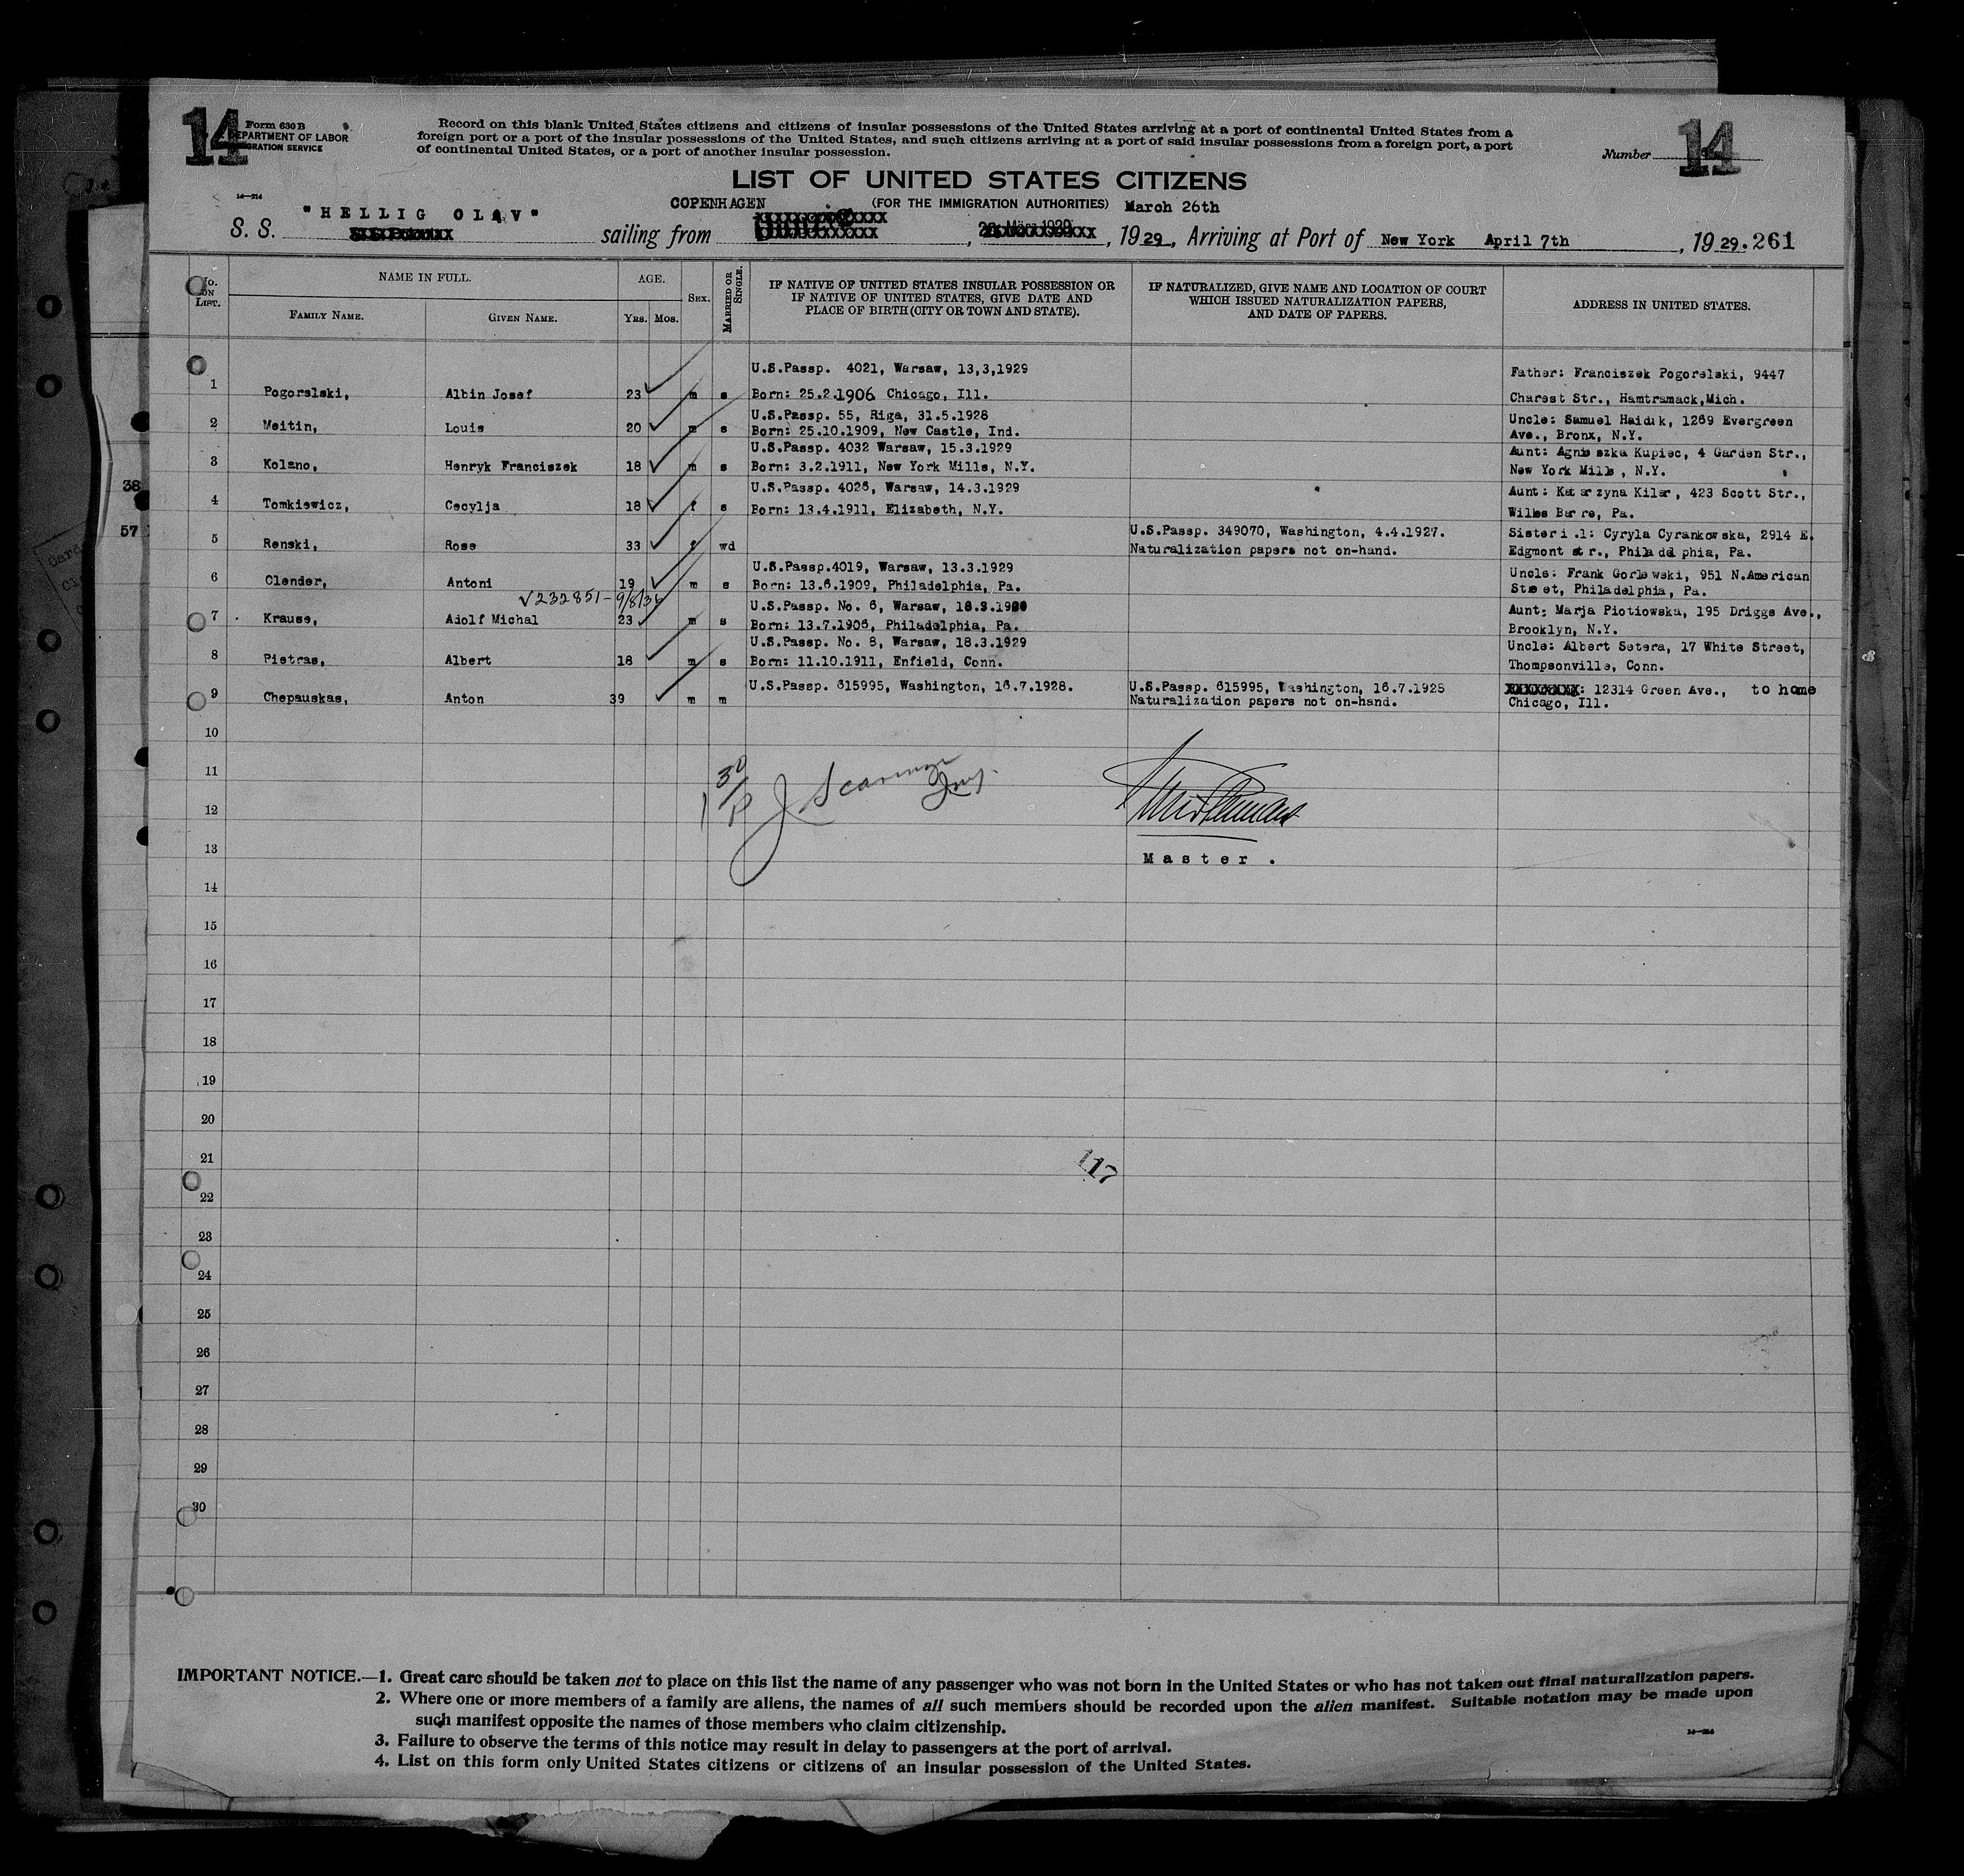 14
Form 630 B
DEPARTMENT OF LABOR
IMMIGRATION SERVICE
Record on this blank United States citizens and citizens of insular possessions of the United States arriving at a port of continental United States from a
foreign port or a port of the insular possessions of the United States, and such citizens arriving at a port of said insular possessions from a foreign port, a port
of continental United States, or a port of another insular possession.
Number 14
LIST OF UNITED STATES CITIZENS
14—214
COPENHAGEN (FOR THE IMMIGRATION AUTHORITIES) March 26th
S. S. "HELLIG OLAV" sailing from , 1929, Arriving at Port of New York April 7th , 1929. 261
No. ON LIST.
NAME IN FULL.
FAMILY NAME. GIVEN NAME.
AGE.
YRS. MOS.
SEX.
MARRIED OR SINGLE.
IF NATIVE OF UNITED STATES INSULAR POSSESSION OR
IF NATIVE OF UNITED STATES, GIVE DATE AND
PLACE OF BIRTH (CITY OR TOWN AND STATE).
IF NATURALIZED, GIVE NAME AND LOCATION OF COURT
WHICH ISSUED NATURALIZATION PAPERS,
AND DATE OF PAPERS.
ADDRESS IN UNITED STATES.
U.S.Passp. 4021, Warsaw, 13,3,1929 Father: Franciszek Pogorelski, 9447
1 Pogorelski, Albin Josef 23 m s Born: 25.2.1906 Chicago, Ill. Charest Str., Hamtramack,Mich.
U.S.Passp. 55, Riga, 31.5.1928 Uncle: Samuel Haiduk, 1269 Evergreen
2 Meitin, Louis 20 m s Born: 25.10.1909, New Castle, Ind. Ave., Bronx, N.Y.
U.S.Passp. 4032 Warsaw, 15.3.1929 Aunt: Agnieszka Kupiec, 4 Garden Str.,
3 Kolano, Henryk Franciszek 18 m s Born: 3.2.1911, New York Mills, N.Y. New York Mills, N.Y.
U.S.Passp. 4026, Warsaw, 14.3.1929 Aunt: Katarzyna Kiler, 423 Scott Str.,
4 Tomkiewicz, Cecylja 18 f s Born: 13.4.1911, Elizabeth, N.Y. Wilkes Barre, Pa.
U.S.Passp. 349070, Washington, 4.4.1927. Sister i.l: Cyryla Cyrankowska, 2914 E.
5 Renski, Rose 33 f wd Naturalization papers not on-hand. Edgmont str., Philadelphia, Pa.
U.S.Passp.4019, Warsaw, 13.3.1929 Uncle: Frank Gorlewski, 951 N.American
6 Clender, Antoni 19 m s Born: 13.6.1909, Philadelphia, Pa. Street, Philadelphia, Pa.
√232851-9/8/36
U.S.Passp. No. 6, Warsaw, 18.3.1929 Aunt: Marja Piotiowska, 195 Driggs Ave.,
7 Krause, Adolf Michal 23 m s Born: 13.7.1906, Philadelphia, Pa. Brooklyn, N.Y.
U.S.Passp. No. 8, Warsaw, 18.3.1929 Uncle: Albert Setera, 17 White Street,
8 Pietras, Albert 18 m s Born: 11.10.1911, Enfield, Conn. Thompsonville, Conn.
U.S.Passp. 615995, Washington, 16.7.1928. U.S.Passp. 615995, Washington, 16.7.1928 : 12314 Green Ave., to home
9 Chepauskas, Anton 39 m m Naturalization papers not on-hand. Chicago, Ill.
10
11
12
13 Master.
14
15
16
17
18
19
20
21 117
22
23
24
25
26
27
28
29
30
38
57
IMPORTANT NOTICE.—1. Great care should be taken not to place on this list the name of any passenger who was not born in the United States or who has not taken out final naturalization papers.
2. Where one or more members of a family are aliens, the names of all such members should be recorded upon the alien manifest. Suitable notation may be made upon
such manifest opposite the names of those members who claim citizenship.
3. Failure to observe the terms of this notice may result in delay to passengers at the port of arrival.
4. List on this form only United States citizens or citizens of an insular possession of the United States.
14—214